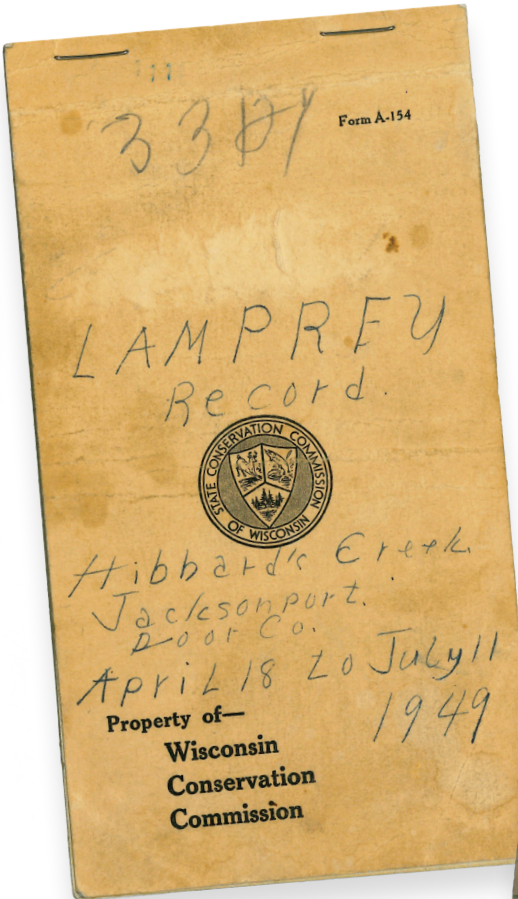 Form A-154
LAMPREY
Record.
STATE CONSERVATION COMMISSION
OF WISCONSIN
Hibbard's Creek
Jacksonport.
Door Co.
April 18 to July 11
1949
Property of—
Wisconsin
Conservation
Commission